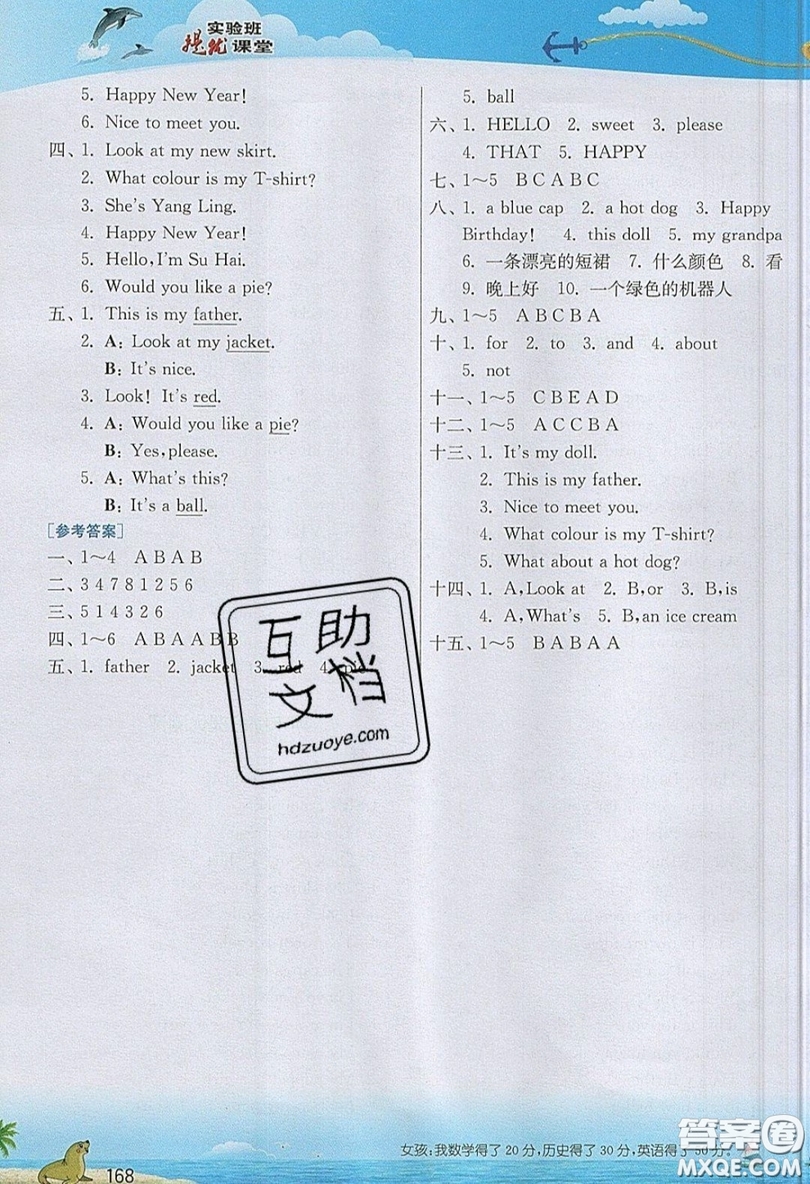 实验班
提优课堂
5. Happy New Year!
6. Nice to meet you.
四、1. Look at my new skirt.
2. What colour is my T-shirt?
3. She's Yang Ling.
4. Happy New Year!
5. Hello,I'm Su Hai.
6. Would you like a pie?
五、1. This is my father.
2. A: Look at my jacket.
B: It's nice.
3. Look! It's red.
4. A: Would you like a pie?
B: Yes,please.
5. A: What's this?
B: It's a ball.
[参考答案]
一、1～4 A B A B
二、3 4 7 8 1 2 5 6
三、5 1 4 3 2 6
四、1～6 A B A A B B
五、1. father 2. jacket 3. red 4. pie
5. ball
六、1. HELLO 2. sweet 3. please
4. THAT 5. HAPPY
七、1～5 B C A B C
八、1. a blue cap 2. a hot dog 3. Happy
Birthday! 4. this doll 5. my grandpa
6. 一条漂亮的短裙 7. 什么颜色 8. 看
9. 晚上好 10. 一个绿色的机器人
九、1～5 A B C B A
十、1. for 2. to 3. and 4. about
5. not
十一、1～5 C B E A D
十二、1～5 A C C B A
十三、1. It's my doll.
2. This is my father.
3. Nice to meet you.
4. What colour is my T-shirt?
5. What about a hot dog?
十四、1. A,Look at 2. B,or 3. B,is
4. A,What's 5. B,an ice cream
十五、1～5 B A B A A
互助
文档
hdzuoye.com
女孩:我数学得了20分,历史得了30分,英语得了50分。
168
答案圈
MXQE.COM